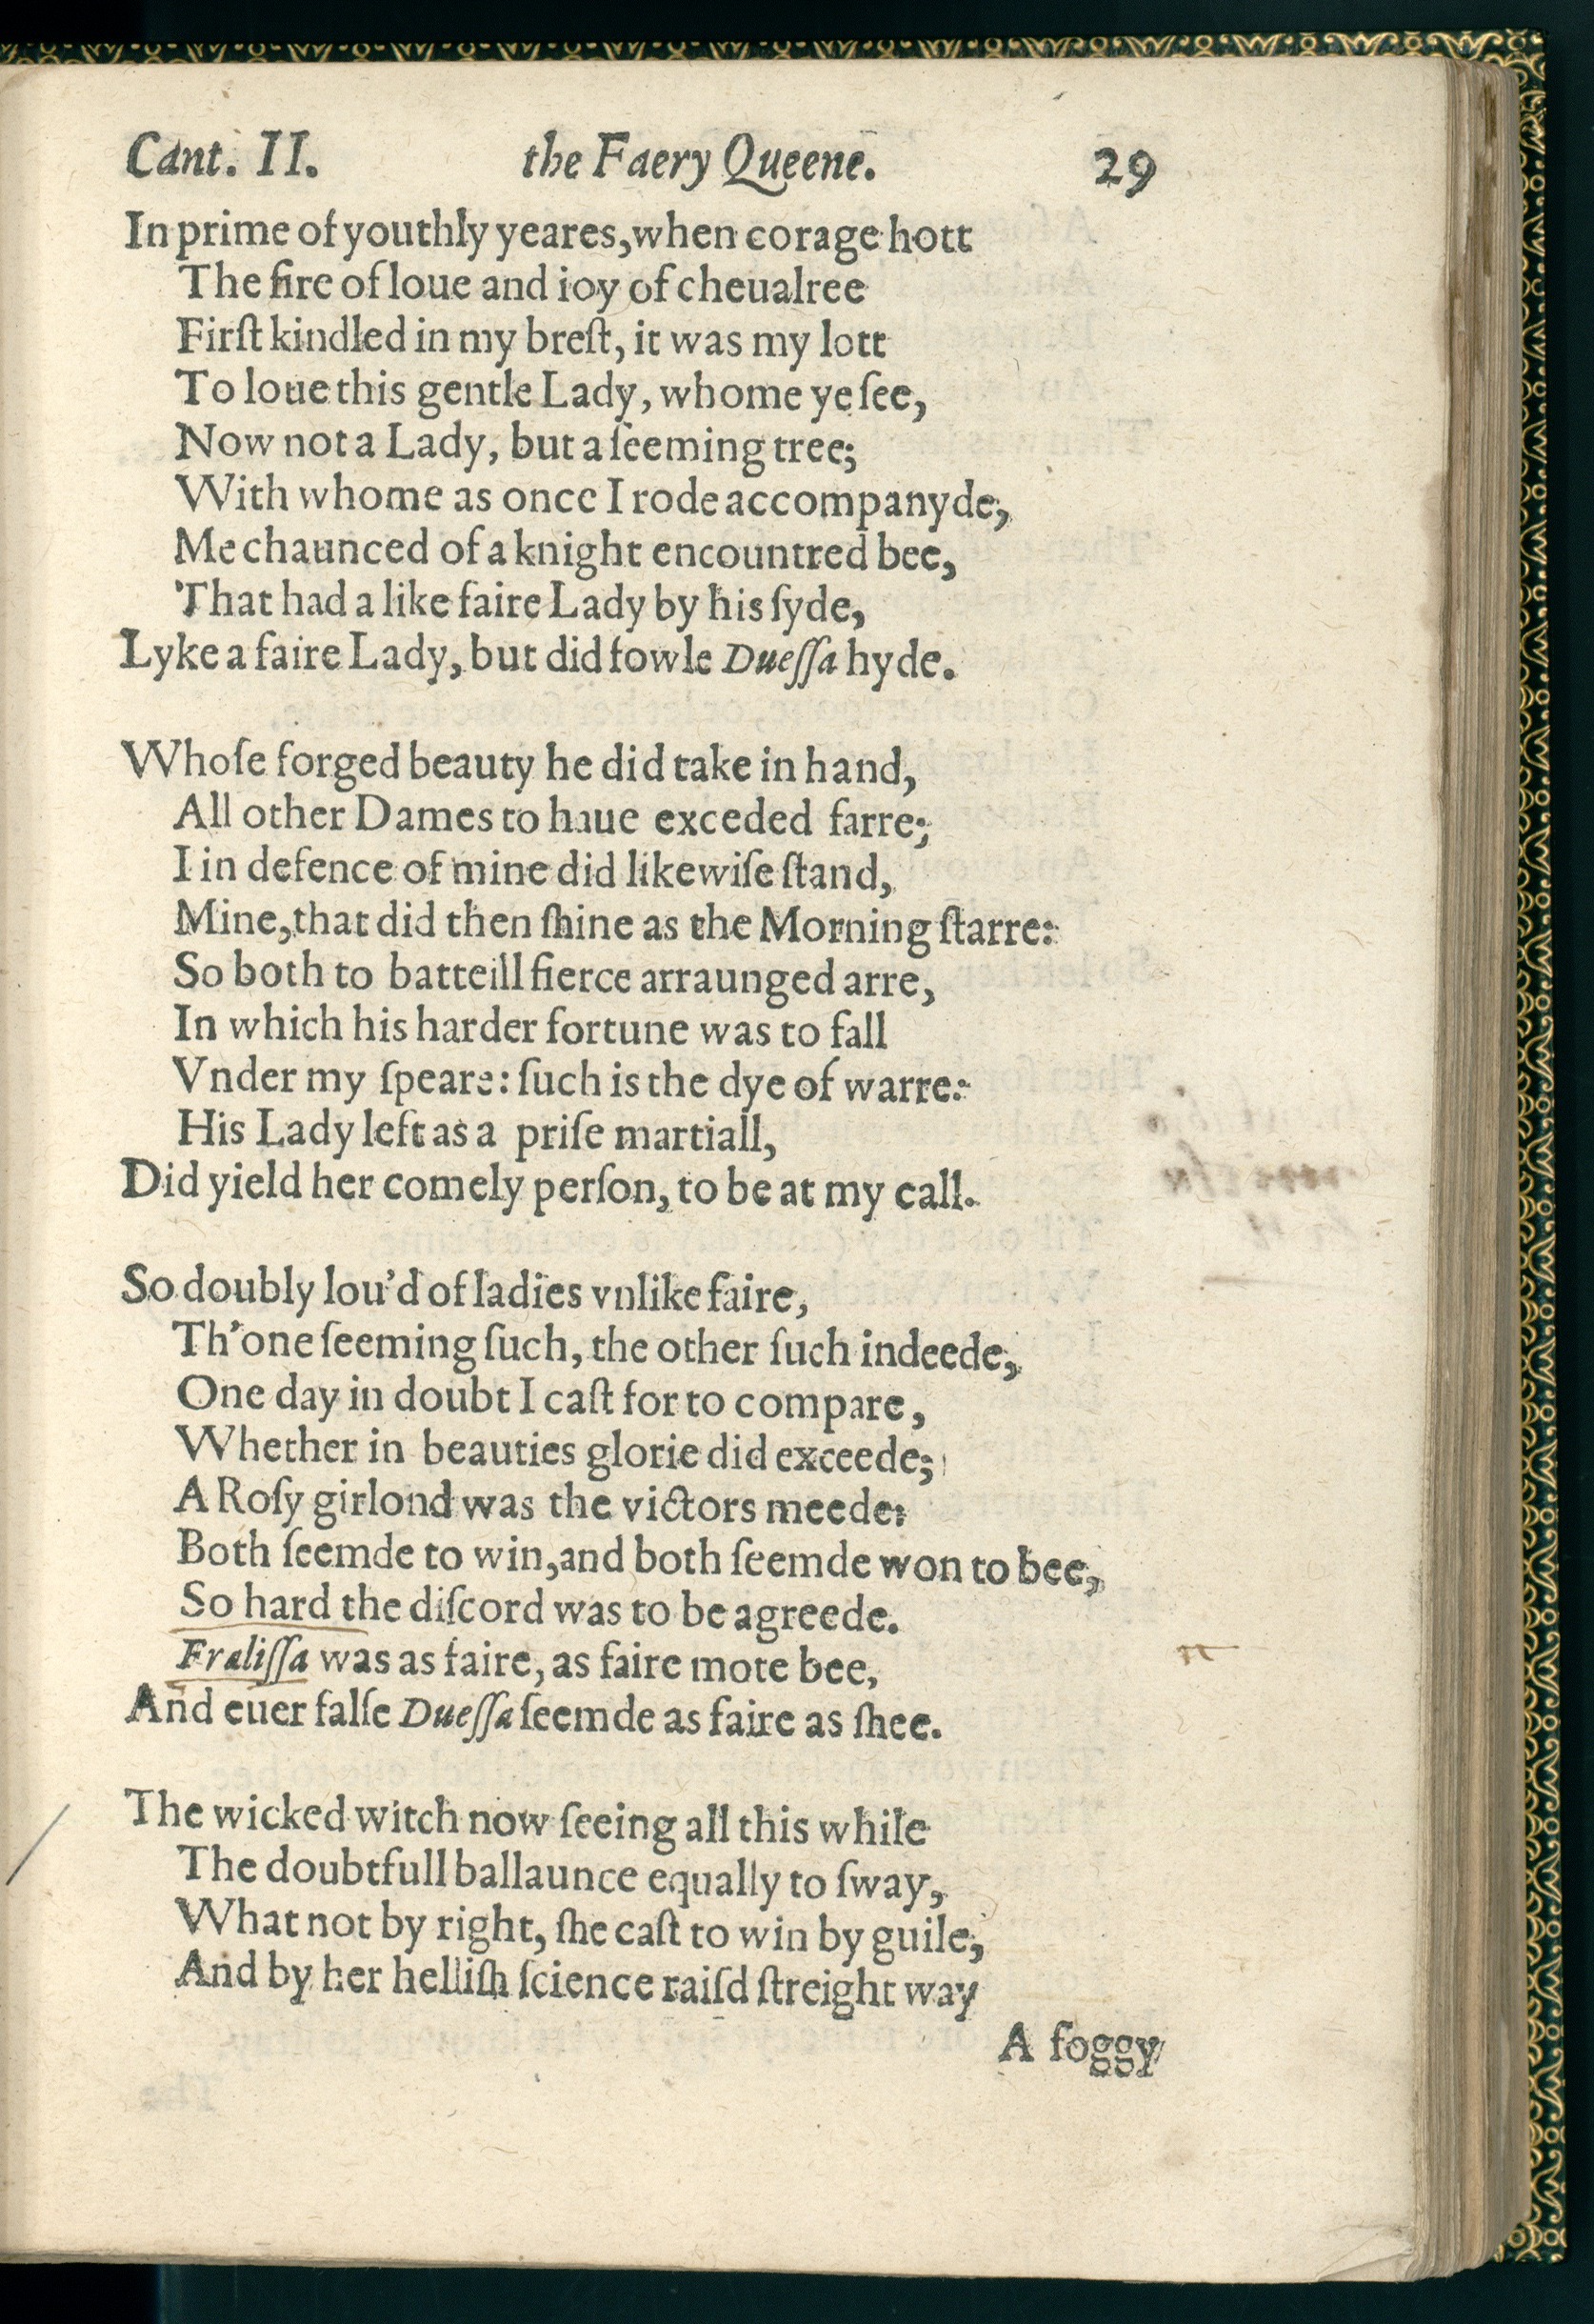 Cant. II. the Faery Queene. 29
In prime of youthly yeares, when corage hott
The fire of loue and ioy of cheualree
Firſt kindled in my breſt, it was my lott
To loue this gentle Lady, whome ye ſee,
Now not a Lady, but a ſeeming tree;
With whome as once I rode accompanyde,
Me chaunced of a knight encountred bee,
That had a like faire Lady by his ſyde,
Lyke a faire Lady, but did fowle Dueſſa hyde.
Whoſe forged beauty he did take in hand,
All other Dames to haue exceded farre;
I in defence of mine did likewiſe ſtand,
Mine, that did then ſhine as the Morning ſtarre:
So both to batteill fierce arraunged arre,
In which his harder fortune was to fall
Vnder my ſpeare: ſuch is the dye of warre:
His Lady left as a priſe martiall,
Did yield her comely perſon, to be at my call.
So doubly lou'd of ladies vnlike faire,
Th'one ſeeming ſuch, the other ſuch indeede,
One day in doubt I caſt for to compare,
Whether in beauties glorie did exceede;
A Roſy girlond was the victors meede:
Both ſeemde to win, and both ſeemde won to bee,
So hard the diſcord was to be agreede.
Fræliſſa was as faire, as faire mote bee,
And euer falſe Dueſſa ſeemde as faire as ſhee.
The wicked witch now ſeeing all this while
The doubtfull ballaunce equally to ſway,
What not by right, ſhe caſt to win by guile,
And by her helliſh ſcience raiſd ſtreight way
A foggy